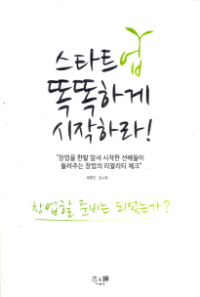 스타트업
똑똑하게
시작하라!
"창업을 한발 앞서 시작한 선배들이
들려주는 창업의 리얼리티 체크"
창업할 준비는 되었는가?